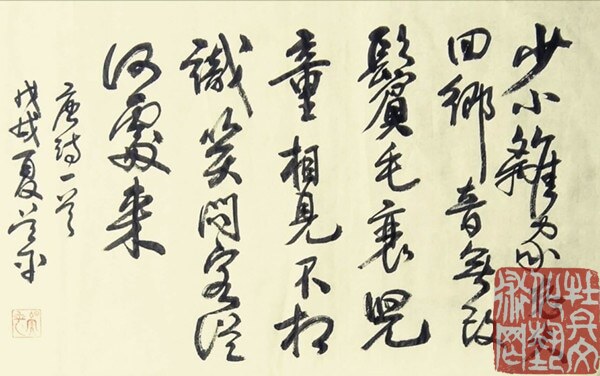 少小離家
回鄉音無改
鬢毛衰兒
童相見不相
識笑問客從
何處来
唐詩一首
戊戌夏
牡丹文
化藝
術网